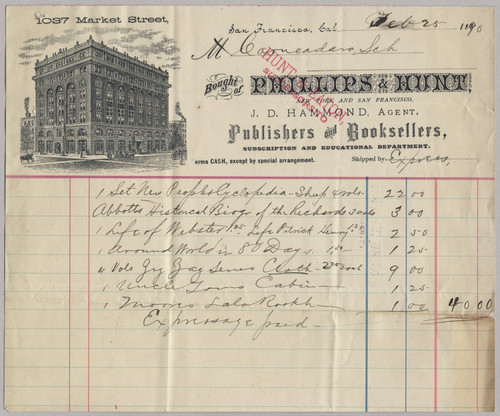 1037 Market Street,
San Francisco, Cal. Feb 25 1890
M Sch
Bought of PHILLIPS & HUNT,
NEW YORK AND SAN FRANCISCO.
J. D. HAMMOND, AGENT,
Publishers and Booksellers,
SUBSCRIPTION AND EDUCATIONAL DEPARTMENT.
Terms CASH, except by special arrangement. Shipped by Express,
HUNT & EATON
1 Set New Peoples Cyclopedia - Shup 22 00
Abbotts Historical Biogr of the Richards 3 00
1 Life of Webster 1.25 Life Patrick Henry 1.25 2 50
1 Around World in 80 Days 1 25
4 Vols Zig Zag Series Cloth - 9 00
1 Uncle Toms Cabin 1 25
1 Moores Lala Rookh 1 00 40.00
Expressage paid